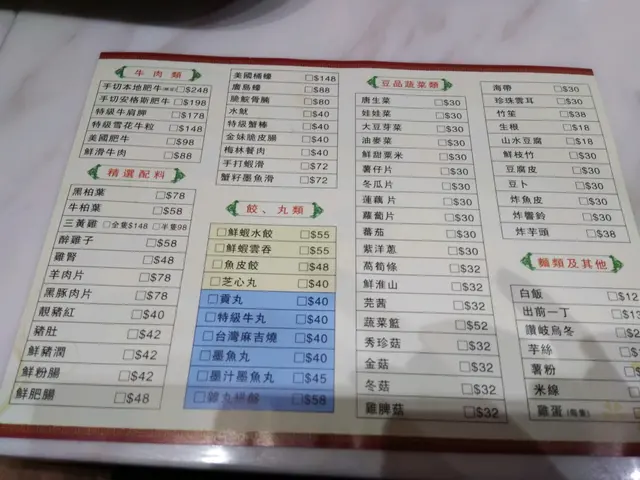 牛肉類
手切本地肥牛 □$248
手切安格斯肥牛 □$198
特級牛肩胛 □$178
特級雪花牛粒 □$148
美國肥牛 □$98
鮮滑牛肉 □$88
精選配料
黑柏葉 □$78
牛柏葉 □$58
三黃雞 □全隻$148 □半隻98
醉雞子 □$58
雞腎 □$48
羊肉片 □$78
黑豚肉片 □$78
靚豬紅 □$40
豬肚 □$42
鮮豬潤 □$42
鮮粉腸 □$42
鮮肥腸 □$48
美國桶蠔 □$148
廣島蠔 □$88
脆鮫骨腩 □$80
水魷 □$40
特級蟹棒 □$40
金妹脆皮腸 □$40
梅林餐肉 □$40
手打蝦滑 □$72
蟹籽墨魚滑 □$72
餃、丸類
□鮮蝦水餃 □$55
□鮮蝦雲吞 □$55
□魚皮餃 □$48
□芝心丸 □$40
□貢丸 □$40
□特級牛丸 □$40
□台灣麻吉燒 □$40
□墨魚丸 □$40
□墨汁墨魚丸 □$45
□雜丸拼盤 □$58
豆品蔬菜類
唐生菜 □$30
娃娃菜 □$30
大豆芽菜 □$30
油麥菜 □$30
鮮甜粟米 □$30
薯仔片 □$30
冬瓜片 □$30
蓮藕片 □$30
蘿蔔片 □$30
蕃茄 □$30
紫洋蔥 □$30
萵荀條 □$32
鮮淮山 □$32
芫茜 □$32
蔬菜籃 □$52
秀珍菇 □$32
金菇 □$32
冬菇 □$32
雞脾菇 □$32
海帶 □$30
珍珠雲耳 □$30
竹笙 □$38
生根 □$18
山水豆腐 □$18
鮮枝竹 □$30
豆腐皮 □$30
豆卜 □$30
炸魚皮 □$30
炸響鈴 □$30
炸芋頭 □$38
麵類及其他
白飯 □$12
出前一丁 □$13
讚岐烏冬 □$2
芋絲 □$
薯粉 □$
米線 □
雞蛋(每隻) □